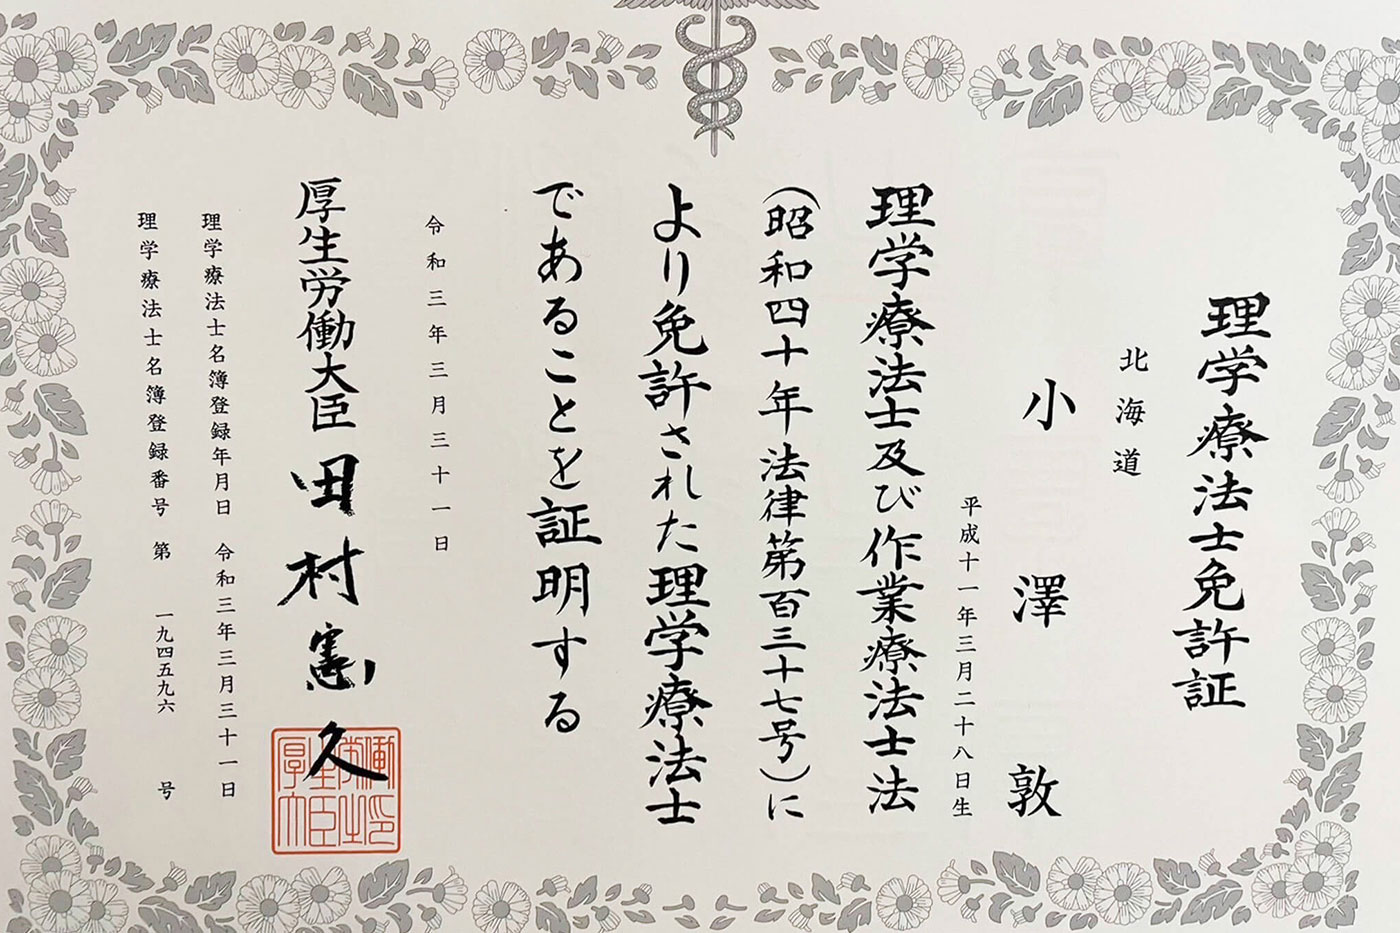 理学療法士免許証
北海道
小澤敦
平成十一年三月二十八日生
理学療法士及び作業療法士法
(昭和四十年法律第百三十七号)に
より免許された理学療法士
であることを証明する
令和三年三月三十一日
厚生労働大臣 田村憲久
厚生労働大臣印
理学療法士名簿登録年月日 令和三年三月三十一日
理学療法士名簿登録番号 第 一九四五九六 号